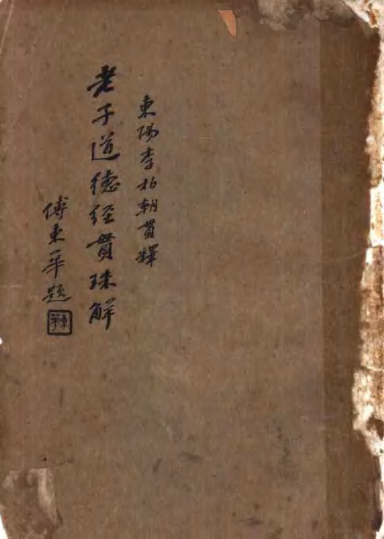 東陽李柏朝貫釋
老子道德經貫珠解
傅東華題